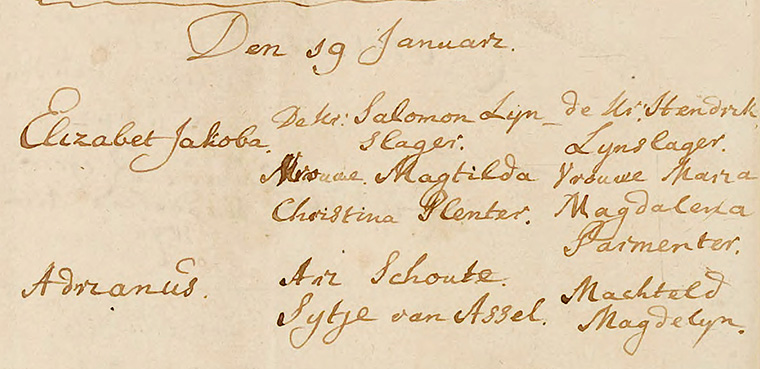 Den 19 Januari.
Elizabet Jakoba.
De Hr: Salomon Lyn-
slager.
Vrouwe Magtilda
Christina Plenter.
de Hr: Hendrik
Lynslager.
Vrouwe Maria
Magdalena
Parmenter.
Adrianus.
Ari Schoute.
Sytje van Assel.
Machteld
Magdelyn.